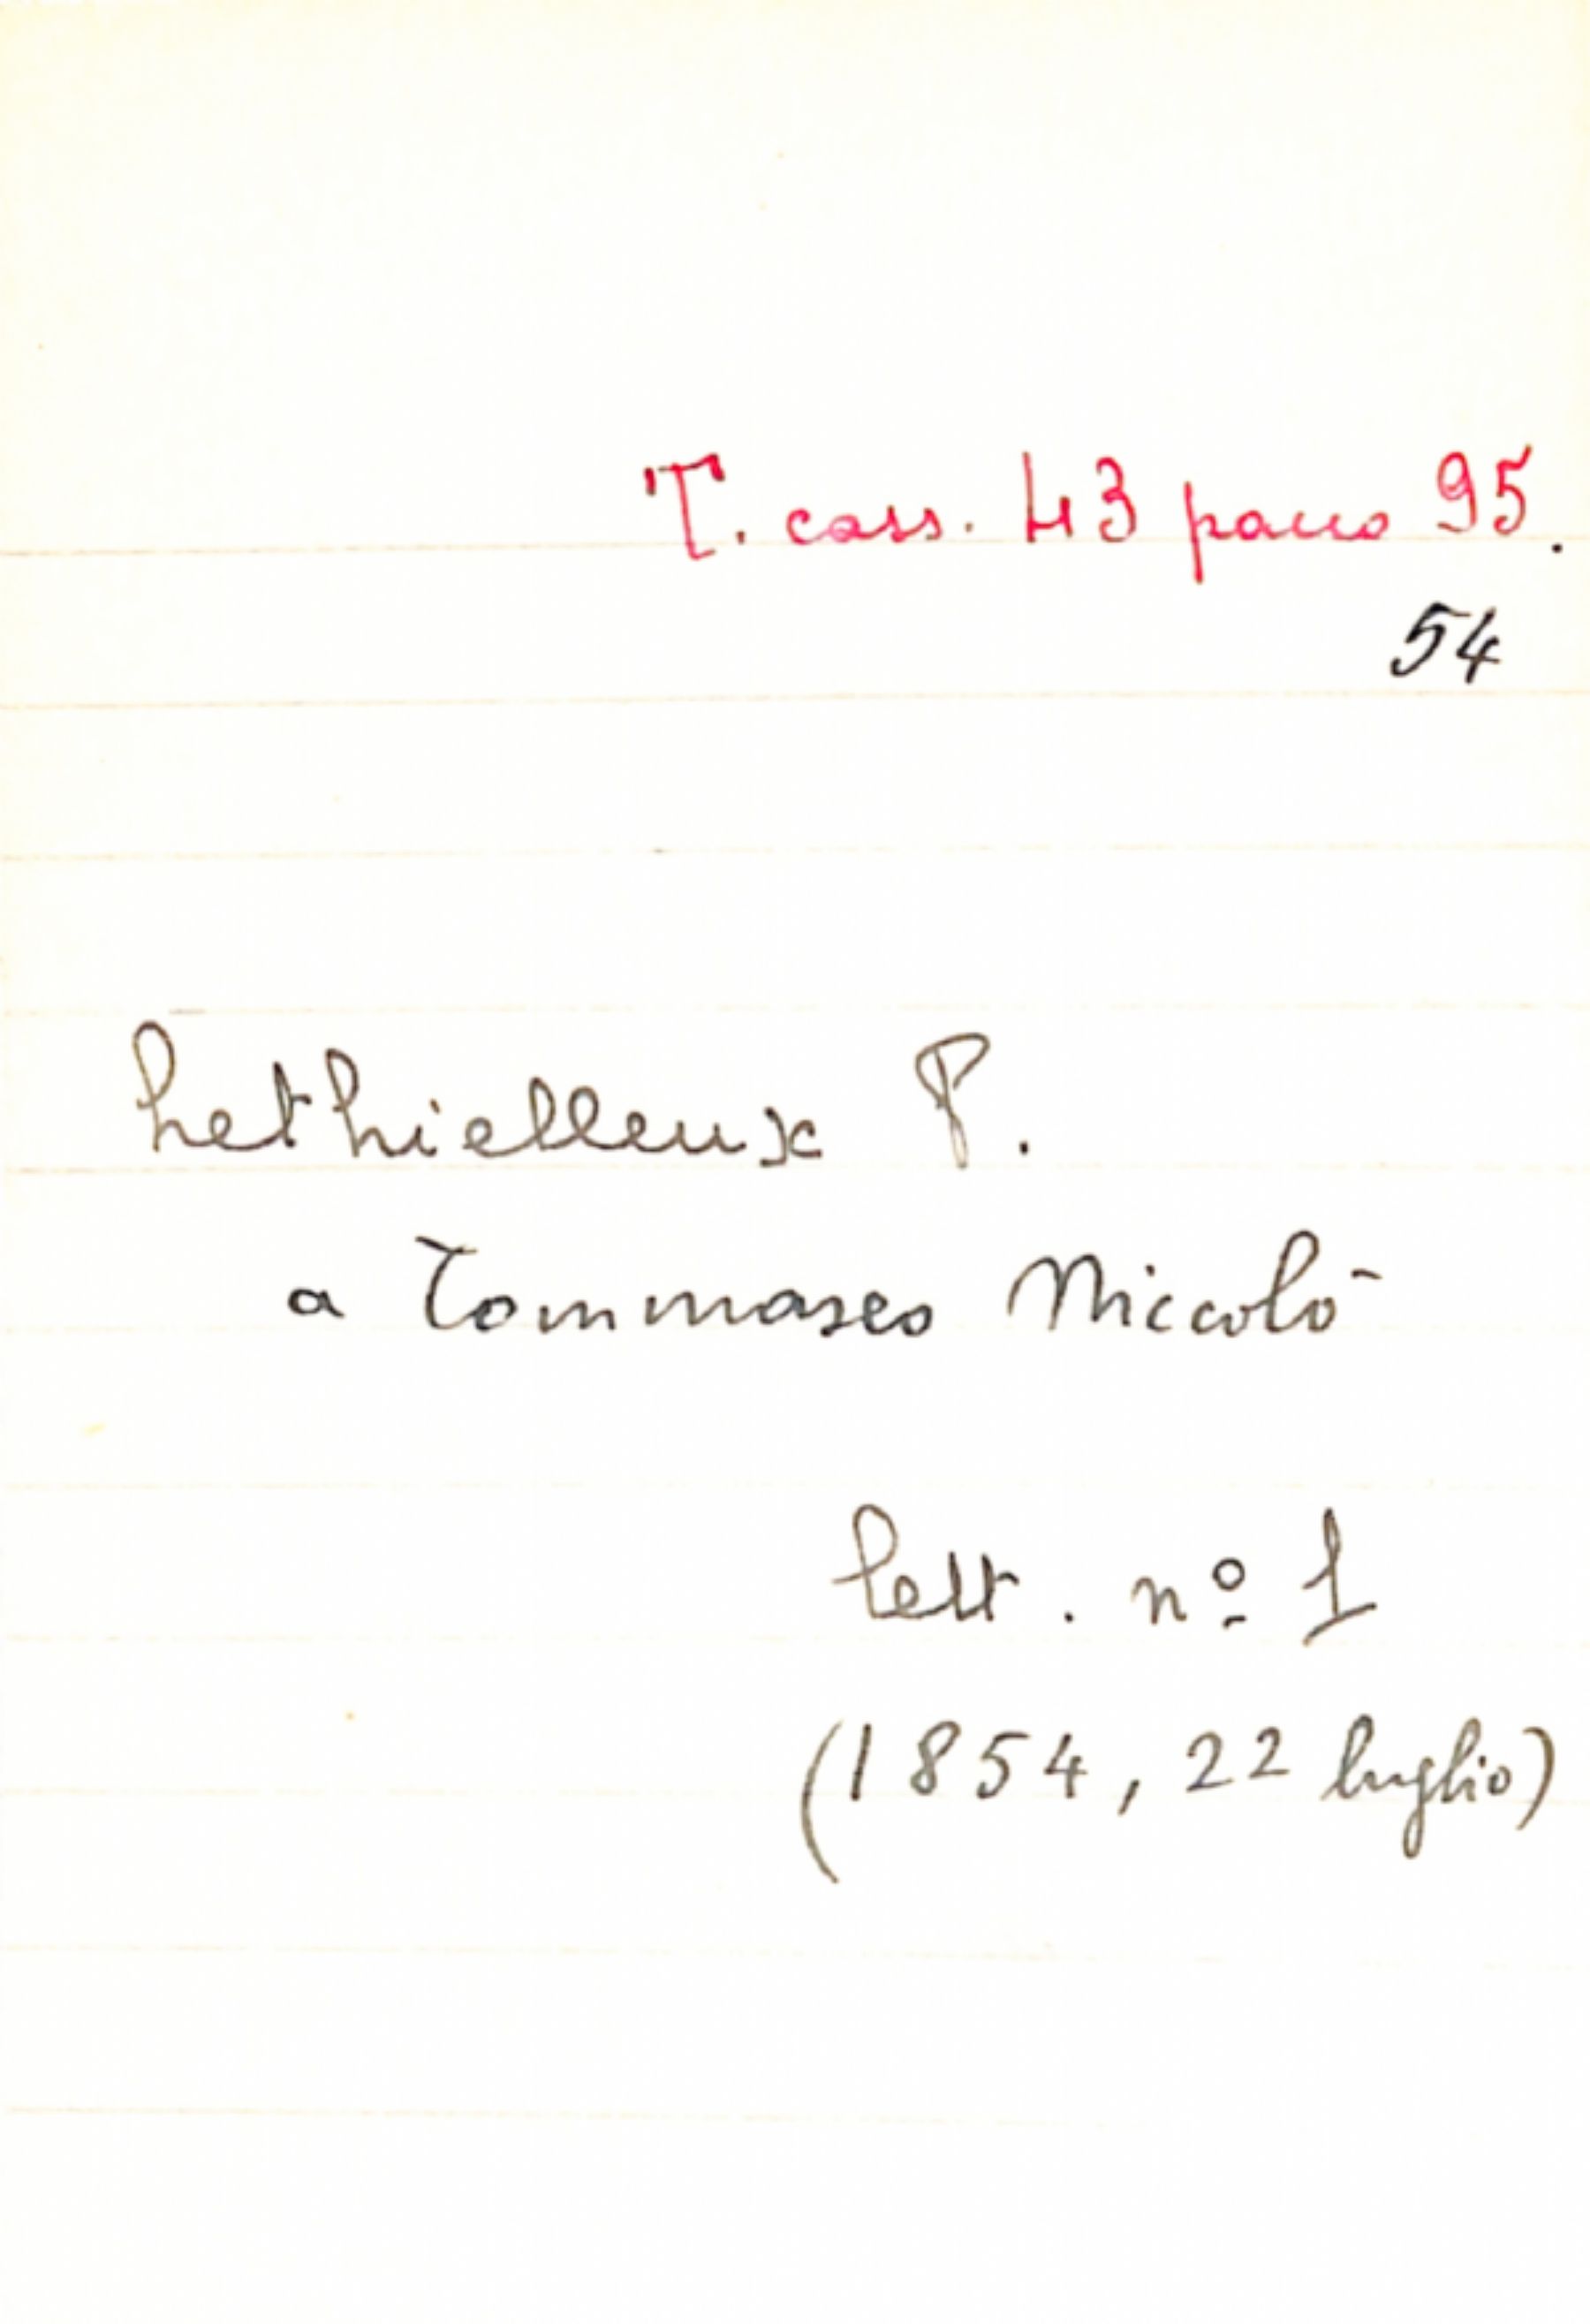 T. cass. 43 pacco 95.
54
Lethielleux P.
a Tommaseo Niccolò
lett. nº 1
(1854, 22 luglio)